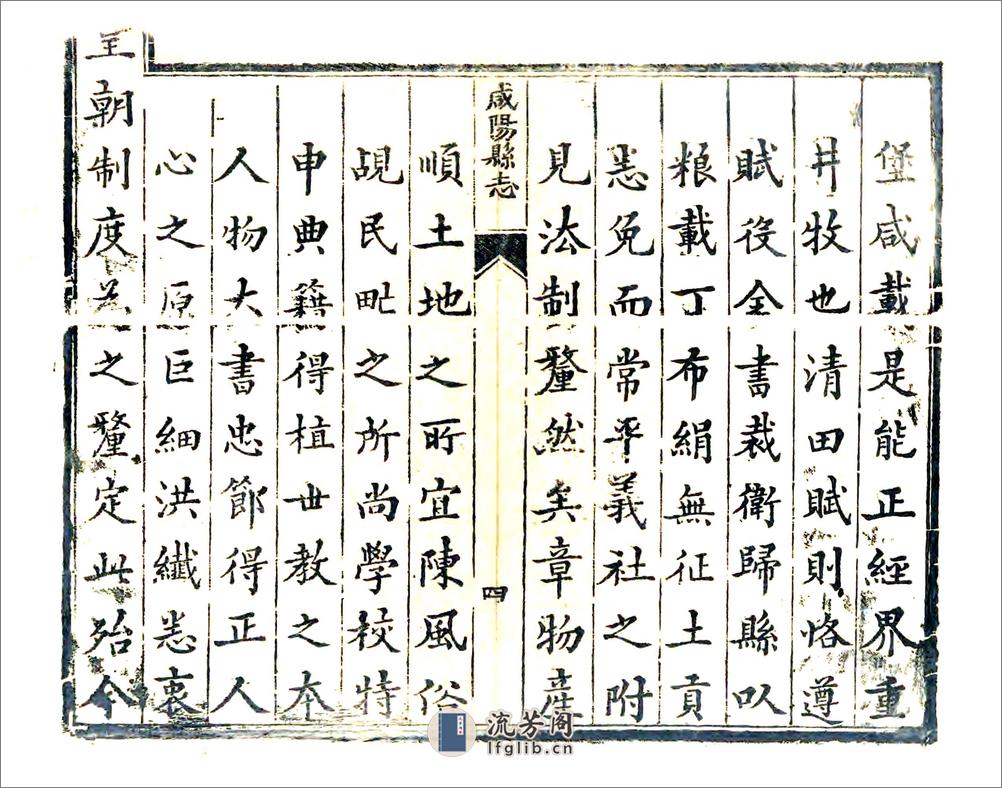 堡咸載是能正經界重
井牧也清田賦則恪遵
賦役全書裁衛歸縣以
粮載丁布絹無征土貢
悉免而常平義社之附
見法制釐然矣章物產
咸陽縣志
四
順土地之所宜陳風俗
覘民甿之所尚學校特
申典籍得植世教之本
人物大書忠節得正人
心之原巨細洪纖悉衷
朝制度為之釐定此殆今
流芳阁
lfglib.cn